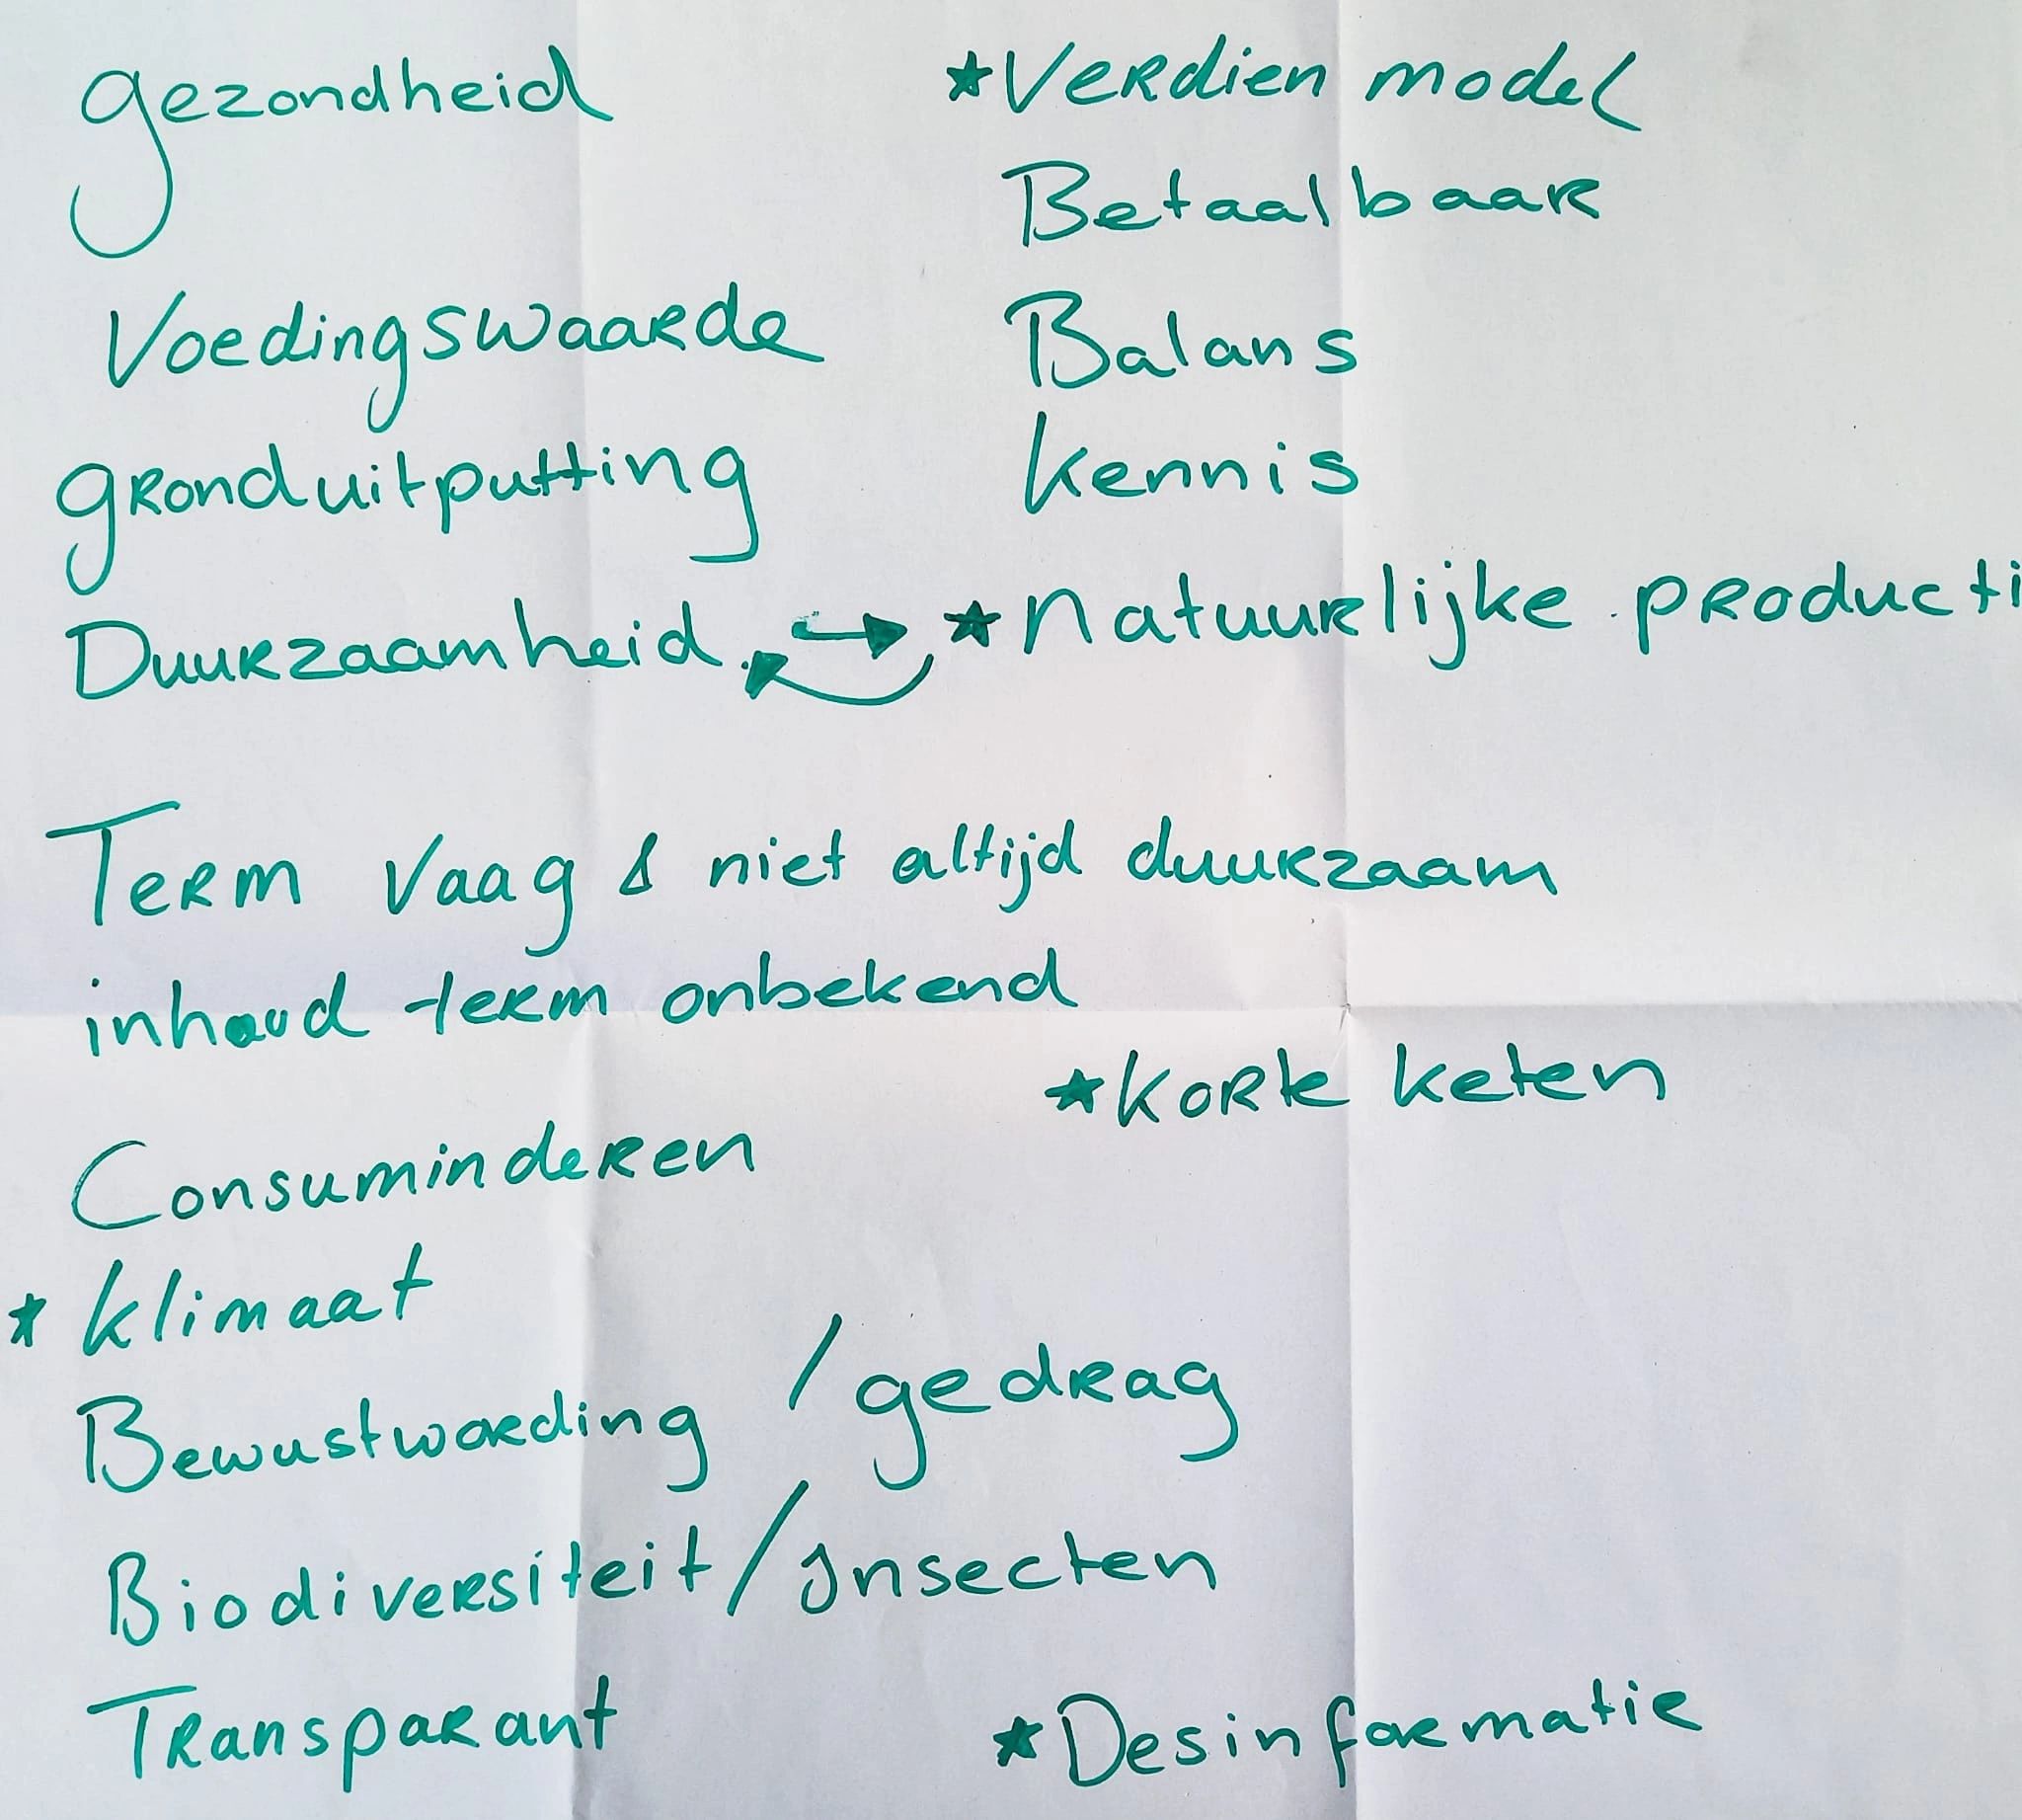 gezondheid
*Verdien model
Betaalbaar
Voedingswaarde
Balans
gronduitputting
kennis
Duurzaamheid
*Natuurlijke producti
Term vaag & niet altijd duurzaam
inhoud term onbekend
*Korte keten
Consuminderen
*klimaat
Bewustwording /gedrag
Biodiversiteit/Insecten
Transparant
*Desinformatie